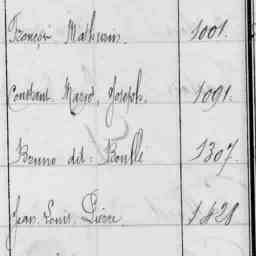 François Mathurin. 1001.
Constant Marie Joseph. 1091.
Bruno dit: Boullé 1307.
Jean Louis Pierre. 1828